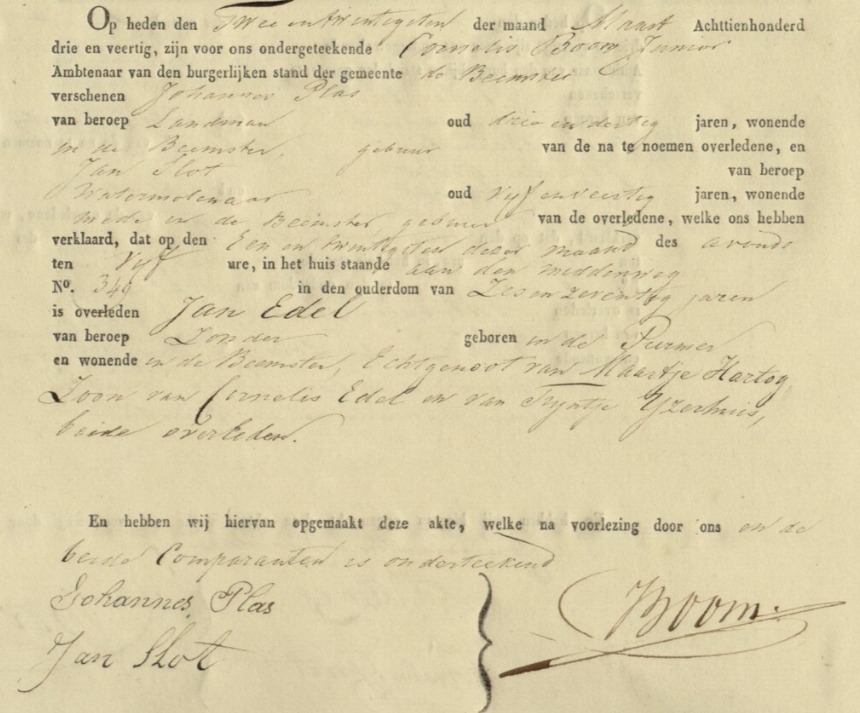 Op heden den Twee en twintigsten der maand Maart Achttienhonderd
drie en veertig, zijn voor ons ondergeteekende Cornelis Boom Junior
Ambtenaar van den burgerlijken stand der gemeente de Beemster
verschenen Johannes Plas
van beroep Landman oud drie en dertig jaren, wonende
in de Beemster, gebuur van de na te noemen overledene, en
Jan Slot van beroep
Watermolenaar oud vijf en veertig jaren, wonende
mede in de Beemster gebuur van de overledene, welke ons hebben
verklaard, dat op den Een en twintigsten dezer maand des avonds
ten vijf ure, in het huis staande aan den middenweg
No. 340 in den ouderdom van Zes en zeventig jaren
is overleden Jan Edel
van beroep Zonder geboren in de Purmer
en wonende in de Beemster, Echtgenoot van Maartje Hartog,
Zoon van Cornelis Edel en van Tryntje Yzerhuis,
beide overleden.
En hebben wij hiervan opgemaakt deze akte, welke na voorlezing door ons en de
beide Comparanten is onderteekend
Johannes Plas
Jan Slot
Boom.